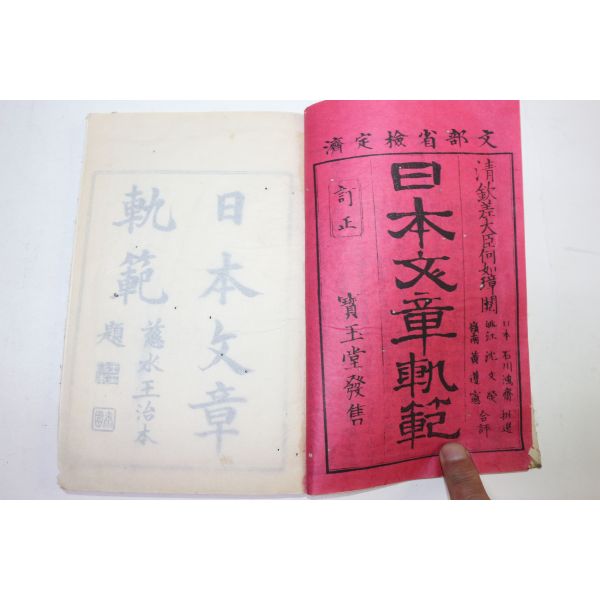 文部省檢定濟
清欽差大臣何如璋閱
日本 石川鴻齋 批選
姚江 沈文熒
嶺南 黃遵憲 合評
日本文章軌範
訂正
寶玉堂發售
日本文章
軌範
慈水王治本
題